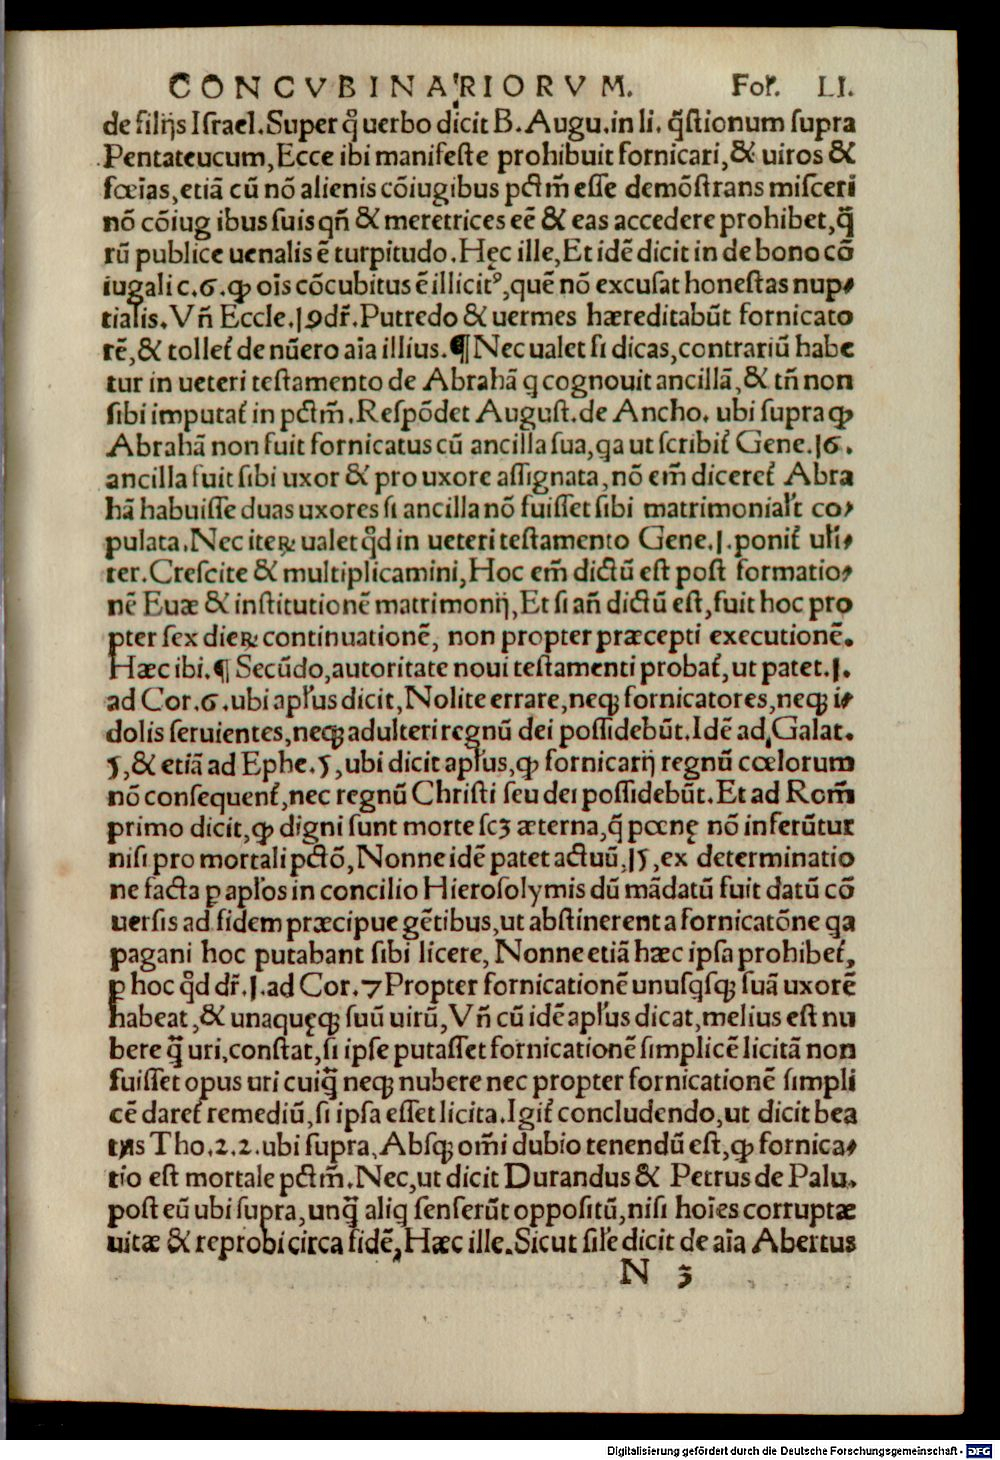 CONCVBINARIORVM. Foł. LI.
de filijs Israel. Super q̊ uerbo dicit B. Augu. in li. q̄stionum supra
Pentateucum, Ecce ibi manifeste prohibuit fornicari, & uiros &
fœīas, etiā cū nō alienis cōiugibus pctm̄ esse demōstrans misceri
nō cōiug ibus suis qn̄ & meretrices eē & eas accedere prohibet, q̄
rū publice uenalis ē turpitudo. Hęc ille, Et idē dicit in de bono cō
iugali c. 6. ꝙ oīs cōcubitus ē illicitꝰ, quē nō excusat honestas nup⸗
tialis. Vn̄ Eccle. 19 dr̄. Putredo & uermes hæreditabūt fornicato
rē, & tolleť de nūero aīa illius. ¶ Nec ualet si dicas, contrariū habe
tur in ueteri testamento de Abrahā q cognouit ancillā, & tn̄ non
sibi imputať in pctm̄. Respōdet August. de Ancho. ubi supra ꝙ
Abrahā non fuit fornicatus cū ancilla sua, qa ut scribiť Gene. 16.
ancilla fuit sibi uxor & pro uxore assignata, nō em̄ dicereť Abra
hā habuisse duas uxores si ancilla nō fuisset sibi matrimonialr̄ co⸗
pulata. Nec iteꝝ ualet qd̄ in ueteri testamento Gene. 1. poniť ulr̄i⸗
ter. Crescite & multiplicamini, Hoc em̄ dictū est post formatio⸗
nē Euæ & institutionē matrimonij, Et si an̄ dictū est, fuit hoc pro
pter sex dieꝝ continuationē, non propter præcepti executionē.
Hæc ibi. ¶ Secūdo, autoritate noui testamenti probať, ut patet. 1.
ad Cor. 6. ubi apłus dicit, Nolite errare, neqꝫ fornicatores, neqꝫ i⸗
dolis seruientes, neqꝫ adulteri regnū dei possidebūt. Idē ad Galat.
5, & etiā ad Ephe. 5, ubi dicit apłus, ꝙ fornicarij regnū cœlorum
nō consequenť, nec regnū Christi seu dei possidebūt. Et ad Rom̄
primo dicit, ꝙ digni sunt morte scꝫ æterna, q̄ pœnę nō inferūtur
nisi pro mortali pctō, Nonne idē patet actuū. 15, ex determinatio
ne facta ꝑ apłos in concilio Hierosolymis dū mādatū fuit datū cō
uersis ad fidem præcipue gētibus, ut abstinerent a fornicatōne qa
pagani hoc putabant sibi licere, Nonne etiā hæc ipsa prohibeť,
ꝑ hoc qd̄ dr̄. 1. ad Cor. 7 Propter fornicationē unusqsqꝫ suā uxorē
habeat, & unaquęqꝫ suū uirū, Vn̄ cū idē apłus dicat, melius est nu
bere q̄ uri, constat, si ipse putasset fornicationē simplicē licitā non
fuisset opus uri cuiq̄ neqꝫ nubere nec propter fornicationē simpli
cē dareť remediū, si ipsa esset licita. Igiť concludendo, ut dicit bea
tus Tho. 2. 2. ubi supra, Absqꝫ om̄i dubio tenendū est, ꝙ fornica⸗
tio est mortale pctm̄. Nec, ut dicit Durandus & Petrus de Palu.
post eū ubi supra, unq̄ aliq senserūt oppositū, nisi hoīes corruptæ
uitæ & reprobi circa fidē, Hæc ille. Sicut siłe dicit de aīa Abertus
N 3
Digitalisierung gefördert durch die Deutsche Forschungsgemeinschaft - DFG